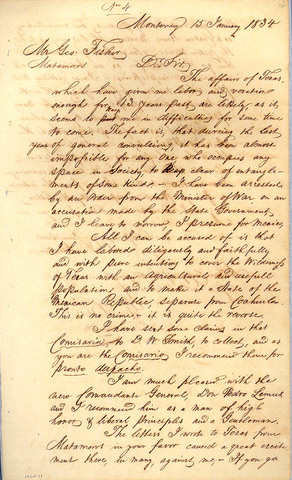 No 4
Monterey 15 January 1834
Mr Geo. Fisher
Matamoros Dr Sir,
The affairs of Texas,
which have given me labor and vexation
enough for 13 years past are likely, as it
seems to put me in difficulties for some time
to come. The fact is, that during the last
year of general convulsions, it has been almost
impossible for any one who occupies any
space in Society, to keep clear of entangle-
ments of some kind — I have been arrested
by an order from the Minister of War on an
accusation made by the State Government,
and I leave to morrow, I presume for Mexico
All I can be accused of is that
I have labored diligently and faithfully,
and with pure intentions to cover the Wilderness
of Texas with an Agricultural and usefull
population, and to make it a State of the
Mexican Republic, seperate from Coahuila.
This is no crime, it is quite the reverse.
I have sent some claims in that
Comisaria, to D. W. Smith, to collect, and as
you are the Comisario, I recommend them for
pronto despacho.
I am much pleased with the
new Comandante General, Don Pedro Lemus
and I recommend him as a man of high
honor & liberal principles and a Gentleman.
The letters I wrote to Texas from
Matamoros in your favor caused a great excite-
ment there, in many, against me, — If you go